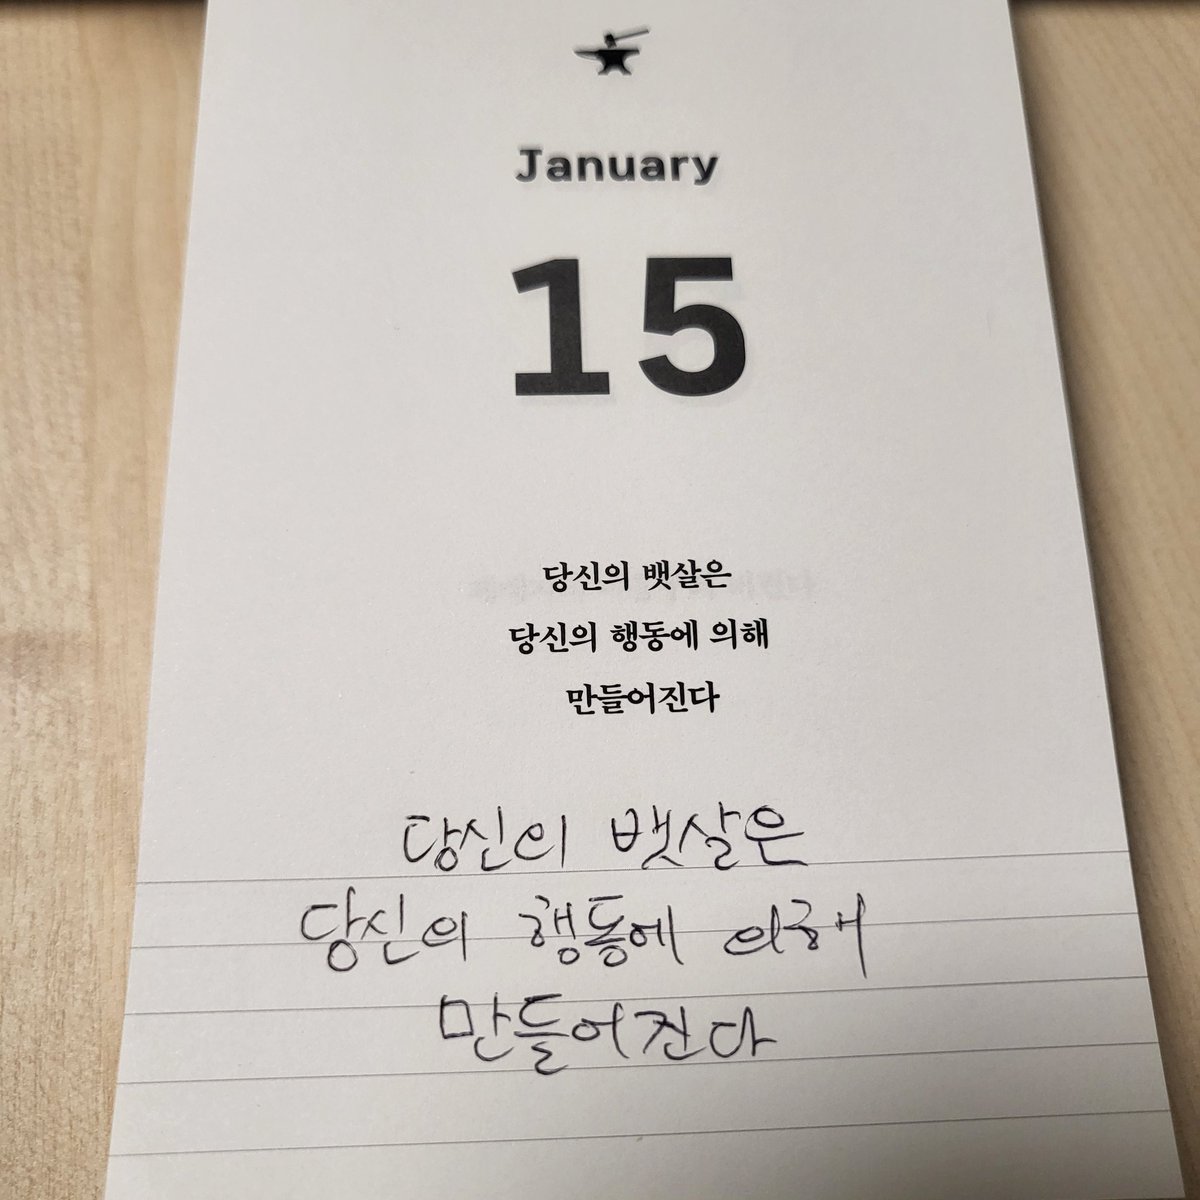 January
15
당신의 뱃살은
당신의 행동에 의해
만들어진다
당신의 뱃살은
당신의 행동에 의해
만들어진다